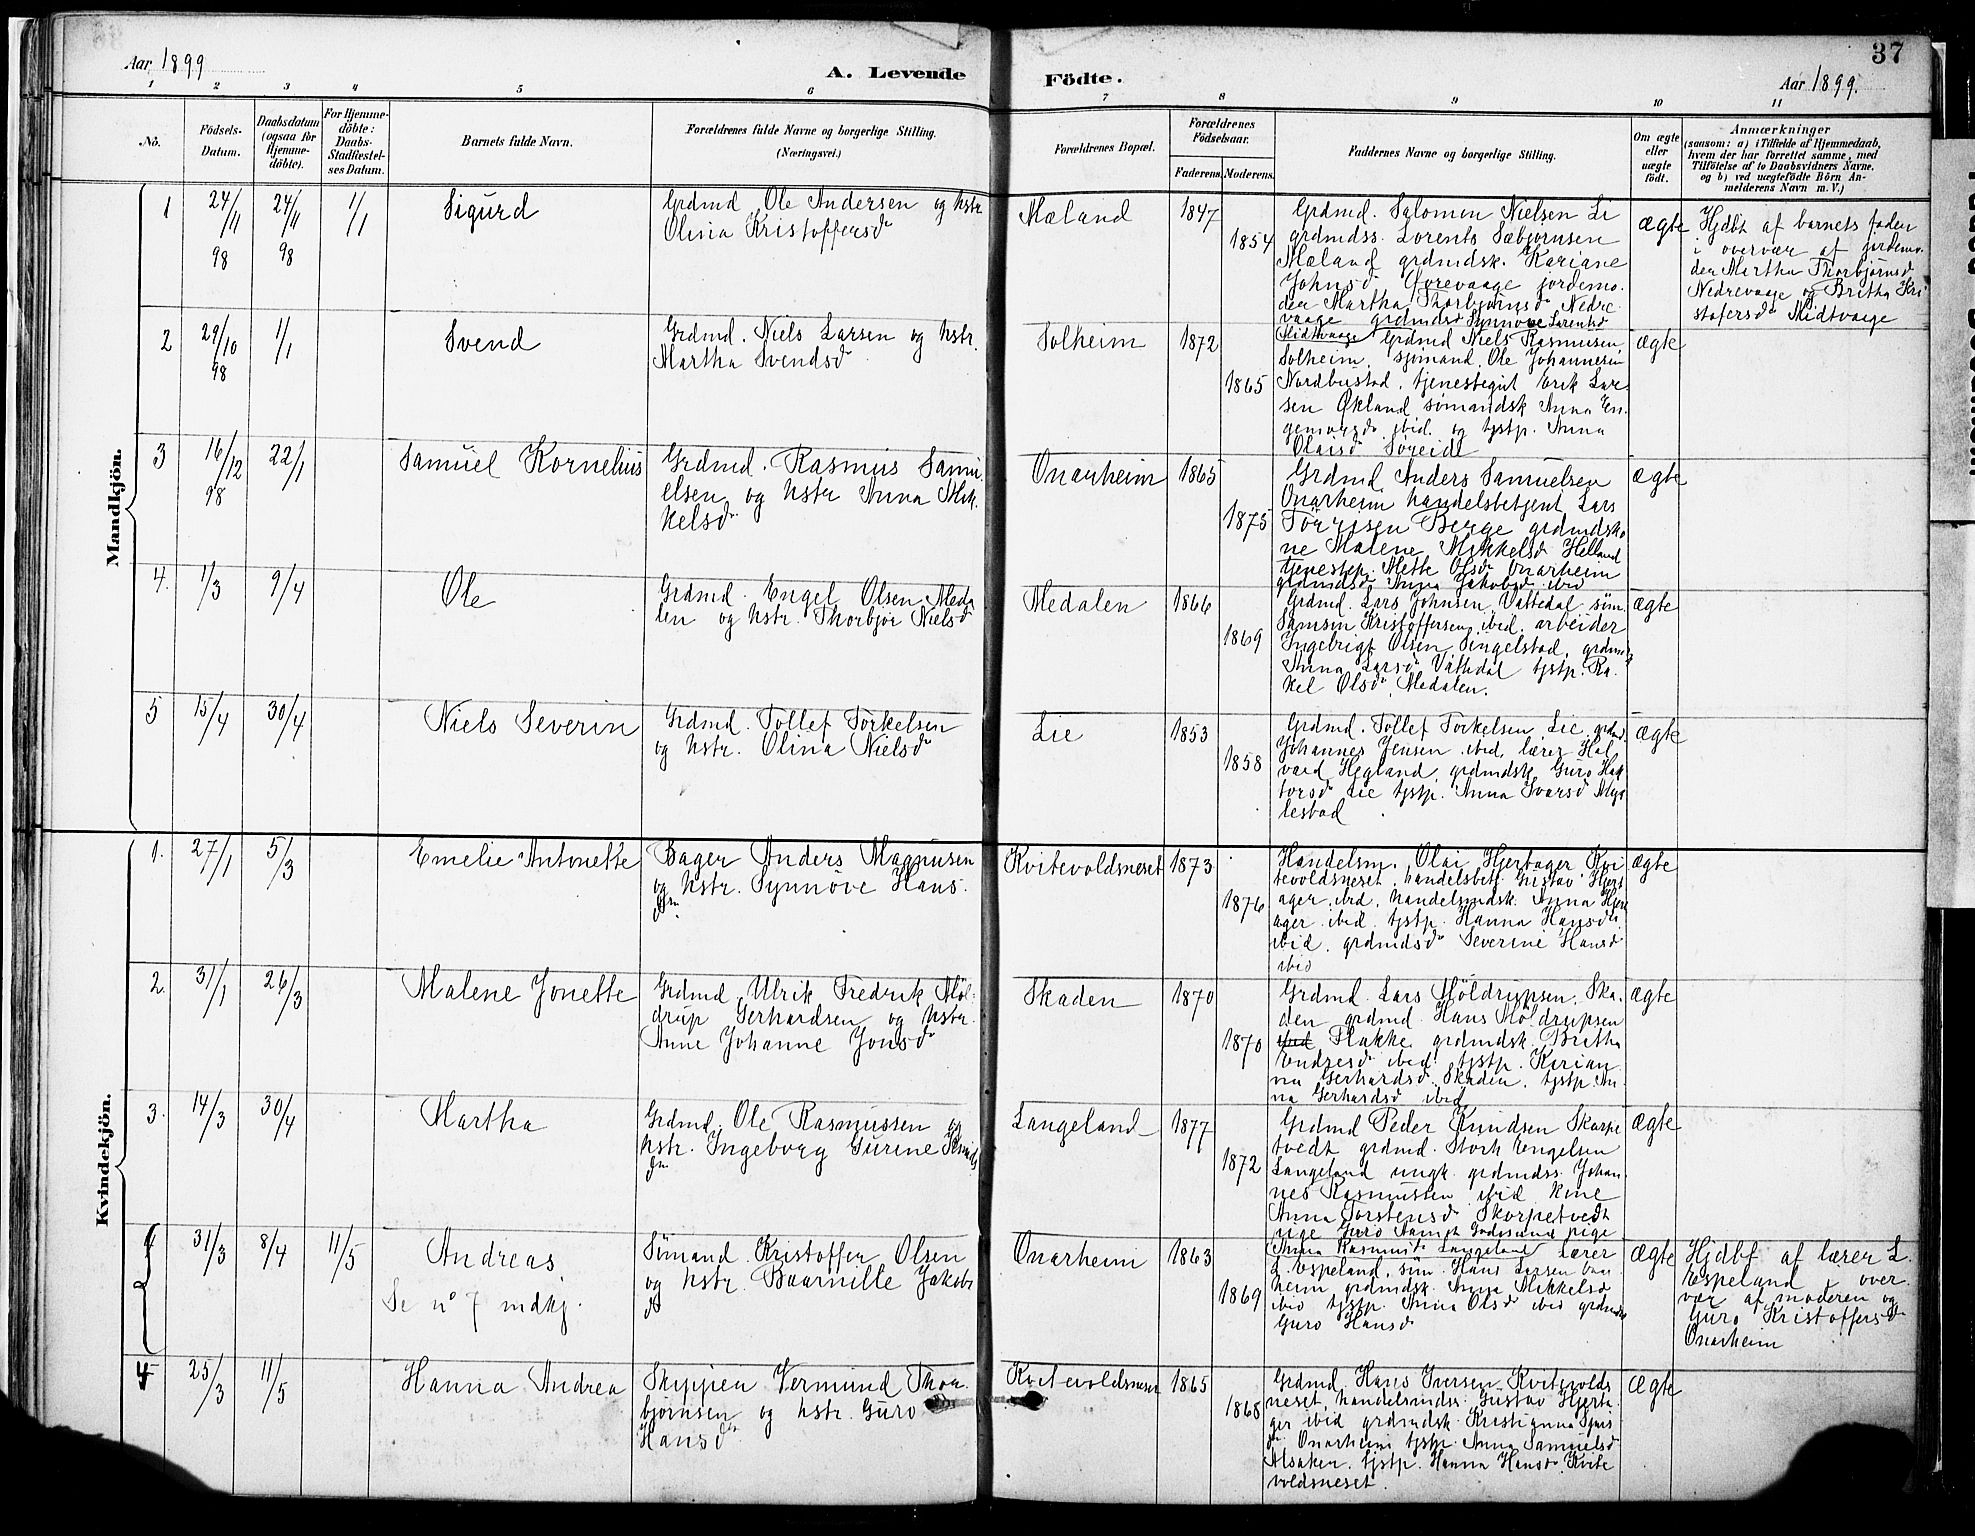 Aar 1899
A. Levende
Födte.
Aar 1899.
37
1
2
3
4
5
6
7
8
9
10
11
No.
Födsels-
Datum.
Daabsdatum
(ogsaa for
Hjemme-
döbte).
For Hjemme-
döbte:
Daabs-
Stadfæstel-
ses Datum.
Barnets fulde Navn.
Forældrenes fulde Navne og borgerlige Stilling.
(Næringsvei.)
Forældrenes Bopæl.
Forældrenes
Födselsaar.
Faderens.
Moderens.
Faddernes Navne og borgerlige Stilling.
Om ægte
eller
uægte
födt.
Anmærkninger
(saasom: a) i Tilfælde af Hjemmedaab,
hvem der har forrettet samme, med
Tilföielse af to Daabsvidners Navne.
og b) ved uægtefödte Börn An-
melderens Navn m. V.)
Mandkjön.
1
24/11
98
24/11
98
1/1
Sigurd
Grdmd. Ole Andersen og hstr
Olina Kristoffersdr
Mæland
1847
1854
Grdmd. Salomon Nielsen Li
grdmdss. Lorents Sæbjørnsen
Mæland grdmdsk. Kariane
Johnsdr Øvrevaage jordemo.
der Martha Thorbjørnsdr Nedre
vaage grdmdsd Synnøve Larentsd
Midtvaage
ægte
Hjdbt af barnets fader
i overvær af jordemo.
der Martha Thorbjørnsd
Nedrevaage og Britha Kri
stofersdr Midtvaage
2
29/10
98
1/1
Svend
Grdmd. Niels Larsen og hstr.
Martha Svendsdr
Solheim
1872
1865
Grdmd Niels Rasmussen
Solheim, sjømand Ole Johannesen
Nordbustad, tjenestegut Erik Lar
sen Økland sømandsk Anna En
gemorsd. ibid. og tjstp. Anna
Olaisdr Søreide
ægte
3
16/12
98
22/1
Samuel Kornelius
Grdmd. Rasmus Samu
elsen og hstr Anna Mik
kelsdr
Onarheim
1865
1875
Grdmd Anders Samuelsen
Onarheim handelsbetjent Lars
Tørrisen Berge grdmdsko
ne Malene Mikkelsdr Helland
tjenestep. Mette Olsdr Onarheim
grdmdsdr Anna Jakobsdr ibid
ægte
4.
1/3
9/4
Ole
Grdmd. Engel Olsen Meda
len og hstr. Thorbjør Nielsd
Medalen
1866
1869
Grdmd. Lars Johnsen Vattedal søm.
Samson Kristoffersen ibid. arbeider
Ingebrigt Olsen Singelstad, grdmdsk
Anna Larsdr Vattedal tjstp. Ra.
kel Olsdr Medalen.
ægte
5
15/4
30/4
Niels Severin
Grdmd. Tollef Torkelsen
og hstr. Olina Nielsdr
Lie
1853
1858
Grdmd. Tollef Torkelsen Lie grdmd.
Johannes Jensen ibid lærer Hal
vard Hegland, grdmdsk Guro Hak
torsdr Lie tjstp. Anna Ivarsdr Myk
lestad
ægte
Kvindekjön.
1.
27/1
5/3
Emelie Antonette
Bager Anders Magnusen
og hstr. Synnøve Hans.
dr
Kvitevoldsneset
1873
1876
Handelsm. Olai Hjertager Kvi
tevoldsneset, handelsbetj. Gustav Hjert
ager ibid, handelsmdsk. Anna Hjert
ager ibid. tjstp. Hanna Hansdr
ibid. grdmdsdr Severine Hansd
ibid
ægte
2.
31/1
26/3
Malene Jonette
Grdmd Ulrik Fredrik Møl-
drup Gerhardsen og hstr.
Anne Johanne Jonsdr
Skaden
1870
1870
Grdmd. Lars Møldrupsen. Ska.
den grdmd. Hans Møldrupsen
ibid Flakke grdmdsk. Britha
Endresdr ibid tjstp. Karian
na Gerhardsd. Skaden, tjstp. An
na Gerhardsd ibid
ægte
3.
14/3
30/4
Martha
Grdmd. Ole Rasmussen og
hstr. Ingeborg Gurine Knuds
dr
Langeland
1877
1872
Grdmd Peder Knudsen Skorpe
tvedt grdmd. Stork Engelsen
Langeland ungk. grdmdss. Johan
nes Rasmussen ibid kone
Anna Torstensdr Skorpetvedt
pige Guro pige
Anna Rasmusdr Langeland
ægte
4
31/3
8/4
11/5
Andreas
Se no 7 mdkj.
Sømand Kristoffer Olsen
og hstr. Baarnille Jakobs
dr
Onarheim
1863
1869
Lærer
L. Espeland, søm. Hans Larsen Onar
heim grdmdsk. Anna Mikkelsd
ibid tjstp. Anna Olsdr ibid grdmdsd
Guro Hansdr
ægte
Hjdbt af lærer L.
Espeland i over
vær af moderen og
Guro Kristoffersdr
Onarheim
4
25/3
11/5
Hanna Andrea
Skipper Vermund Thor.
bjørnsen og hstr. Guro
Hansdr
Kvitevoldsneset
1865
1868
Grdmd. Hans Iversen Kvitevolds
neset, handelsmdss. Gustav Hjerta
ger ibid grdmdsk. Kristianna Sjurs
dr Onarheim tjstp. Anna Samuelsd
Alsaker. tjstp. Hanna Hansdr Kvite
voldsneset.
ægte